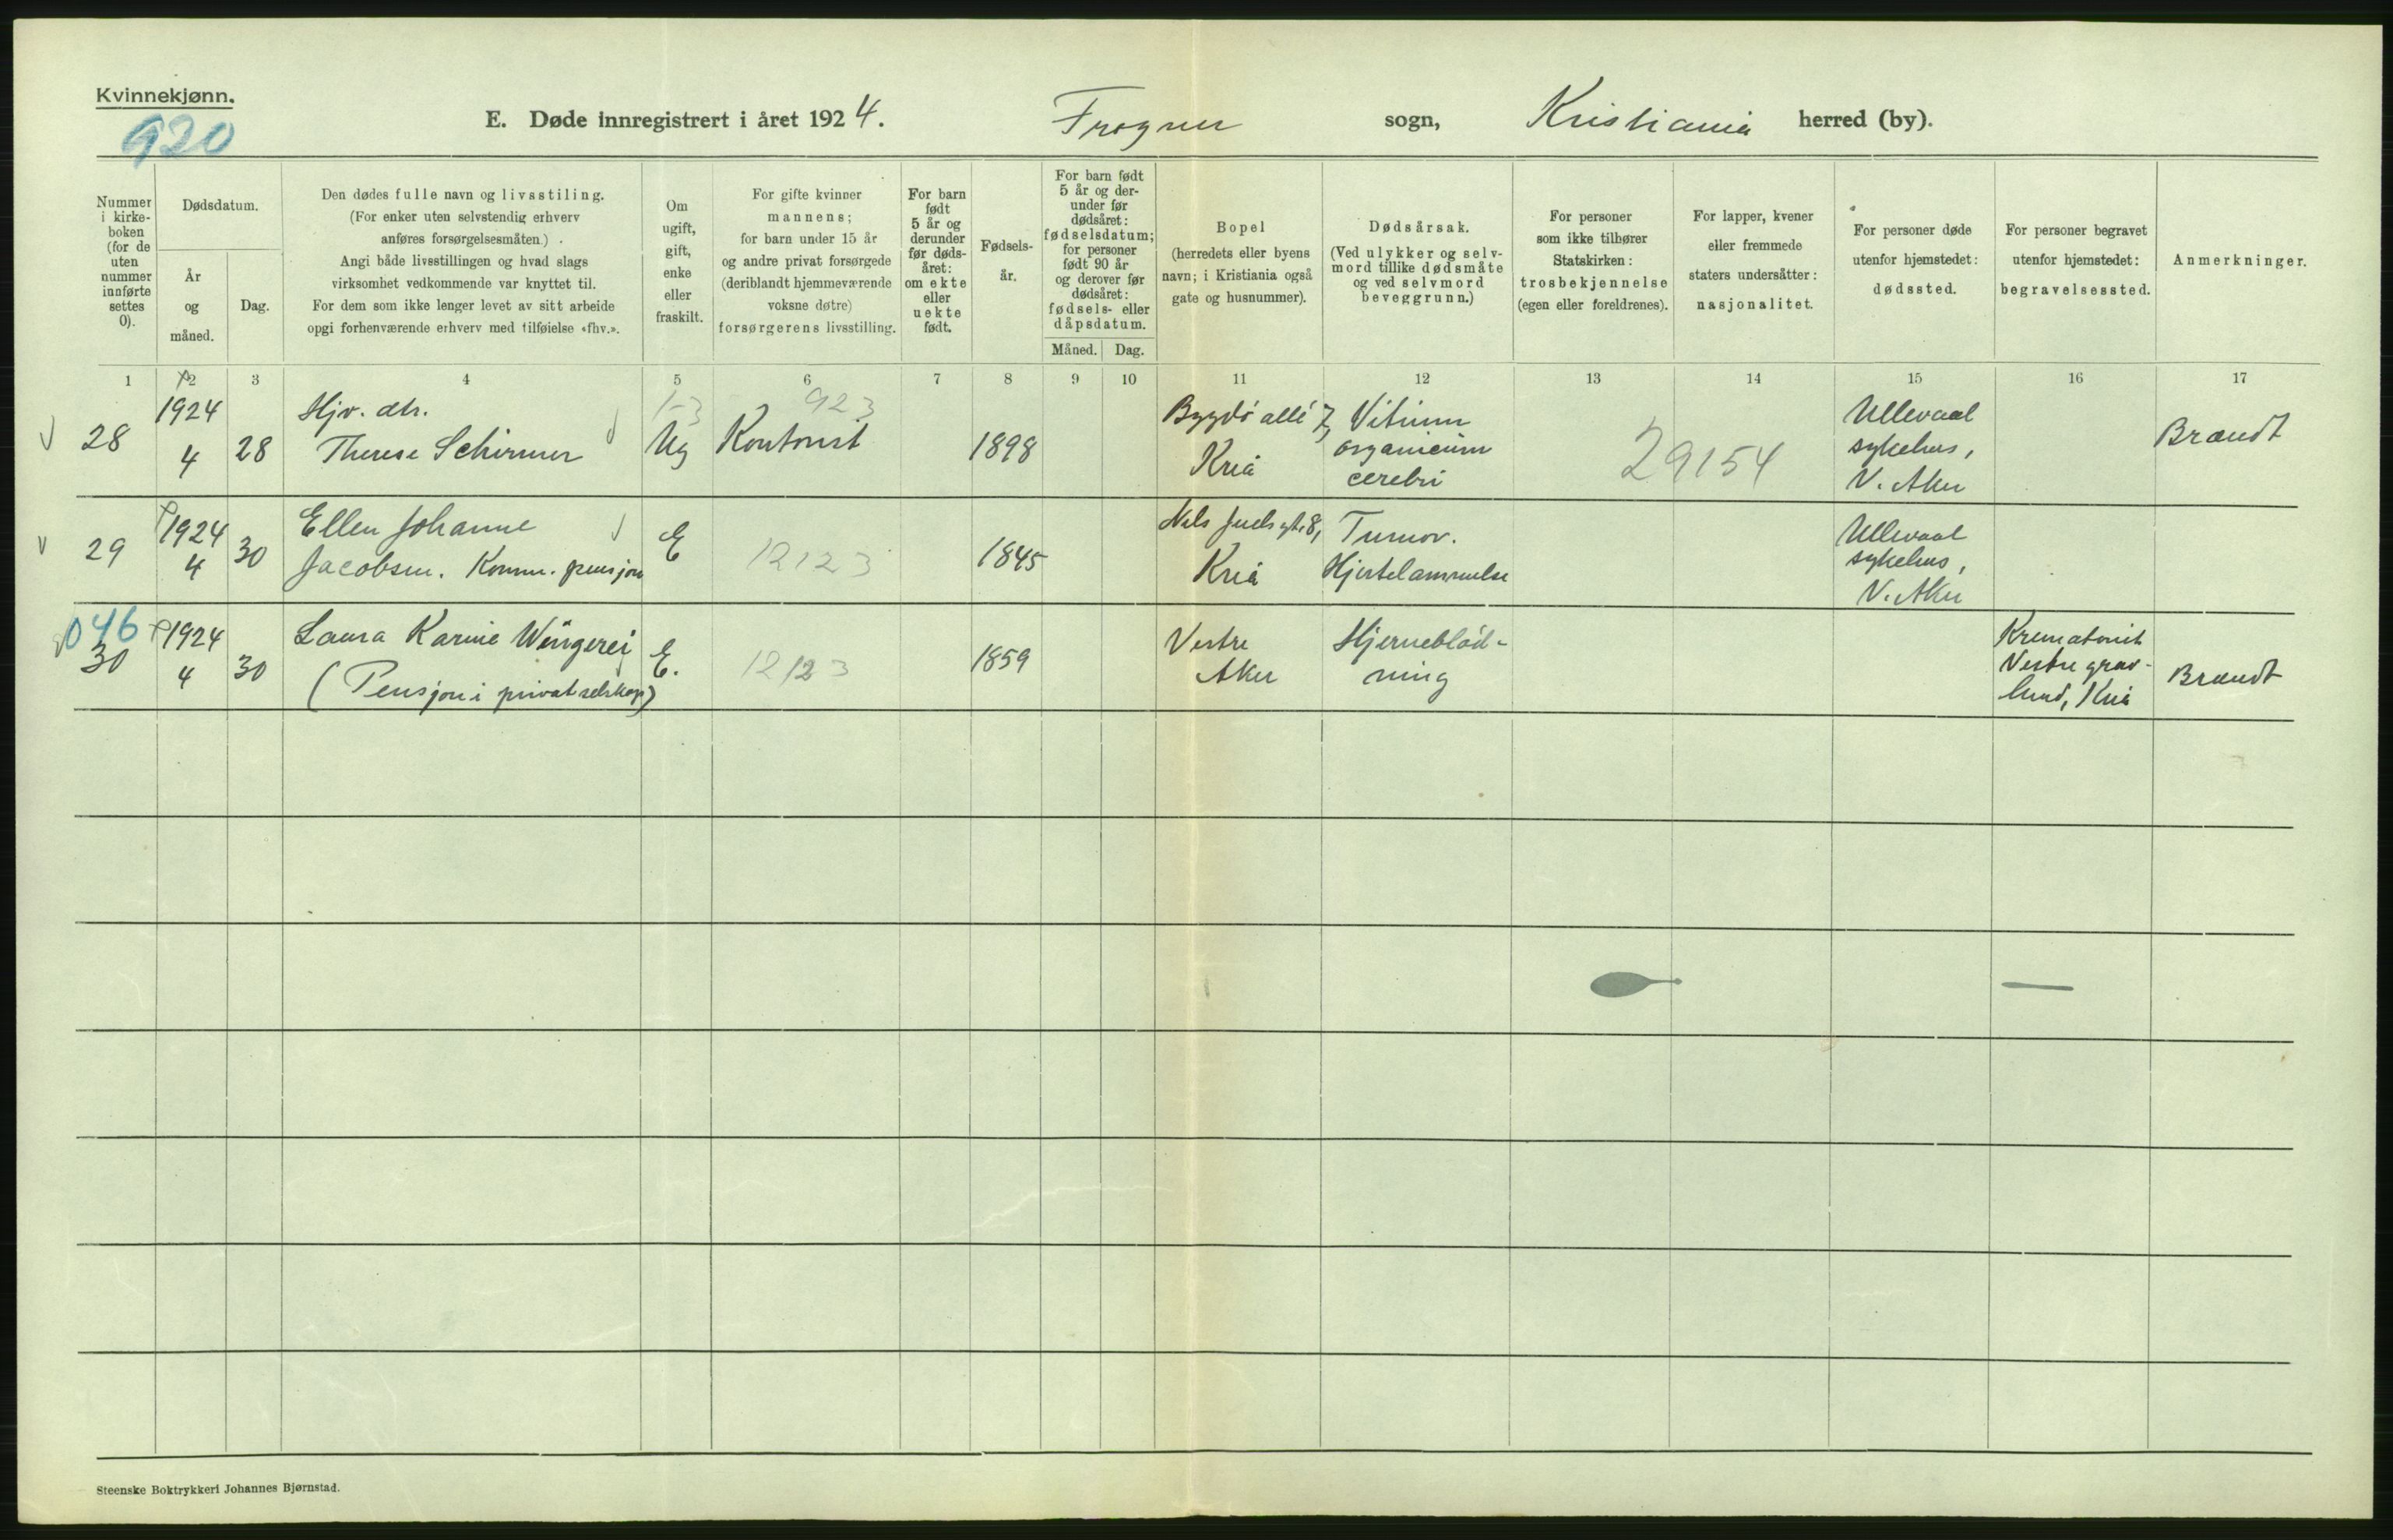 Kvinnekjønn.
920
E. Døde innregistrert i året 1924. Frogner sogn, Kristiania herred (by).
Nummer
i kirke-
boken
(for de
uten
nummer
innførte
settes
0).
Dødsdatum.
År
og
måned.
Dag.
Den dødes fulle navn og livsstiling.
(For enker uten selvstendig erhverv
anføres forsørgelsesmåten.)
Angi både livsstillingen og hvad slags
virksomhet vedkommende var knyttet til.
For dem som ikke lenger levet av sitt arbeide
opgi forhenværende erhverv med tilføielse «fhv.».
Om
ugift,
gift,
enke
eller
fraskilt.
For gifte kvinner
mannens;
for barn under 15 år
og andre privat forsørgede
(deriblandt hjemmeværende
voksne døtre)
forsørgerens livsstilling.
For barn
født
5 år og
derunder
før døds-
året:
om ekte
eller
uekte
født.
Fødsels-
år.
For barn født
5 år og der-
under før
dødsåret:
fødselsdatum;
for personer
født 90 år
og derover før
dødsåret:
fødsels- eller
dåpsdatum.
Måned. Dag.
Bopel
(herredets eller byens
navn; i Kristiania også
gate og husnummer).
Dødsårsak.
(Ved ulykker og selv-
mord tillike dødsmåte
og ved selvmord
beveggrunn.)
For personer
som ikke tilhører
Statskirken:
trosbekjennelse
(egen eller foreldrenes).
For lapper, kvener
eller fremmede
staters undersåtter:
nasjonalitet.
For personer døde
utenfor hjemstedet:
dødssted.
For personer begravet
utenfor hjemstedet:
begravelsessted.
Anmerkninger.
1 2 3 4 5 6 7 8 9 10 11 12 13 14 15 16 17
28
1924
4
28
Hjv. dtr.
Therese Schirmer
Ug
923
Kontorist
1898
Bygdö allé 7,
Kria
Vitium
organicum
cerebri
29154
Ullevaal
sykehus,
V. Aker
Brandt
29
1924
4
30
Ellen Johanne
Jacobsen. Komm. pensjon
E
12123
1845
Nils Juels gt. 8,
Kria
Tumor.
Hjertelammelse
Ullevaal
sykehus,
V. Aker
046
30
1924
4
30
Laura Karine
(Pensjon i privat selskap)
E.
12123
1859
Vestre
Aker
Hjerneblöd-
ning
Krematoriet
Vestre grav-
lund, Kria
Brandt
Steenske Boktrykkeri Johannes Bjørnstad.